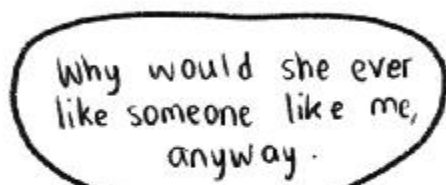 Why would she ever
like someone like me,
anyway.